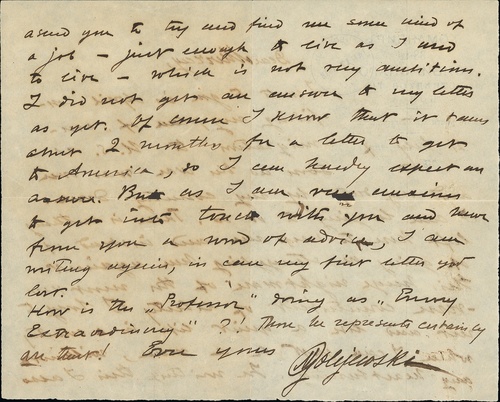 asked you to try and find me some kind of
a job – just enough to live as I used
to live – which is not very ambitious.
I did not get an answer to my letter
as yet. Of course I know that it takes
about 2 months for a letter to get
to America, so I can hardly expect an
answer. But as I am very anxious
to get into touch with you and have
from you a word of advice, I am
writing again, in case my first letter got
lost.
How is the "Professor" doing as "Envoy
Extraordinary"? There he represents certainly
Ever yours